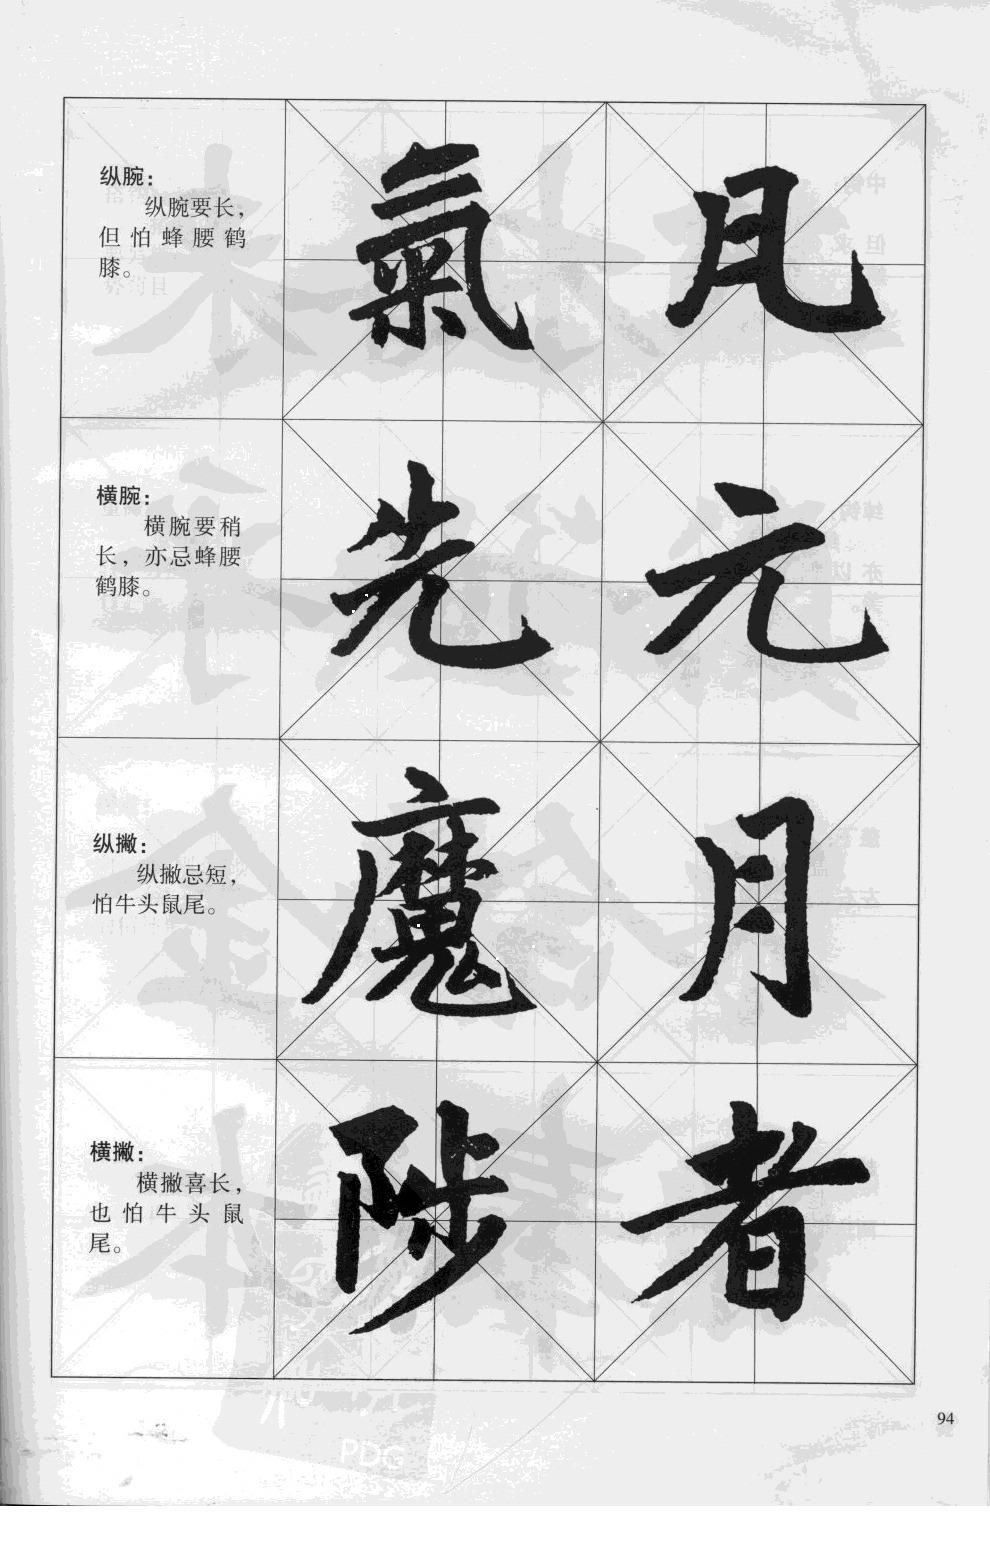 纵腕：
纵腕要长，
但怕蜂腰鹤
膝。
氣
横腕：
横腕要稍
长，亦忌蜂腰
鹤膝。
先 元
纵撇：
纵撇忌短，
怕牛头鼠尾。
魔 月
横撇：
横撇喜长，
也怕牛头鼠
尾。
陟 者
94
PDG